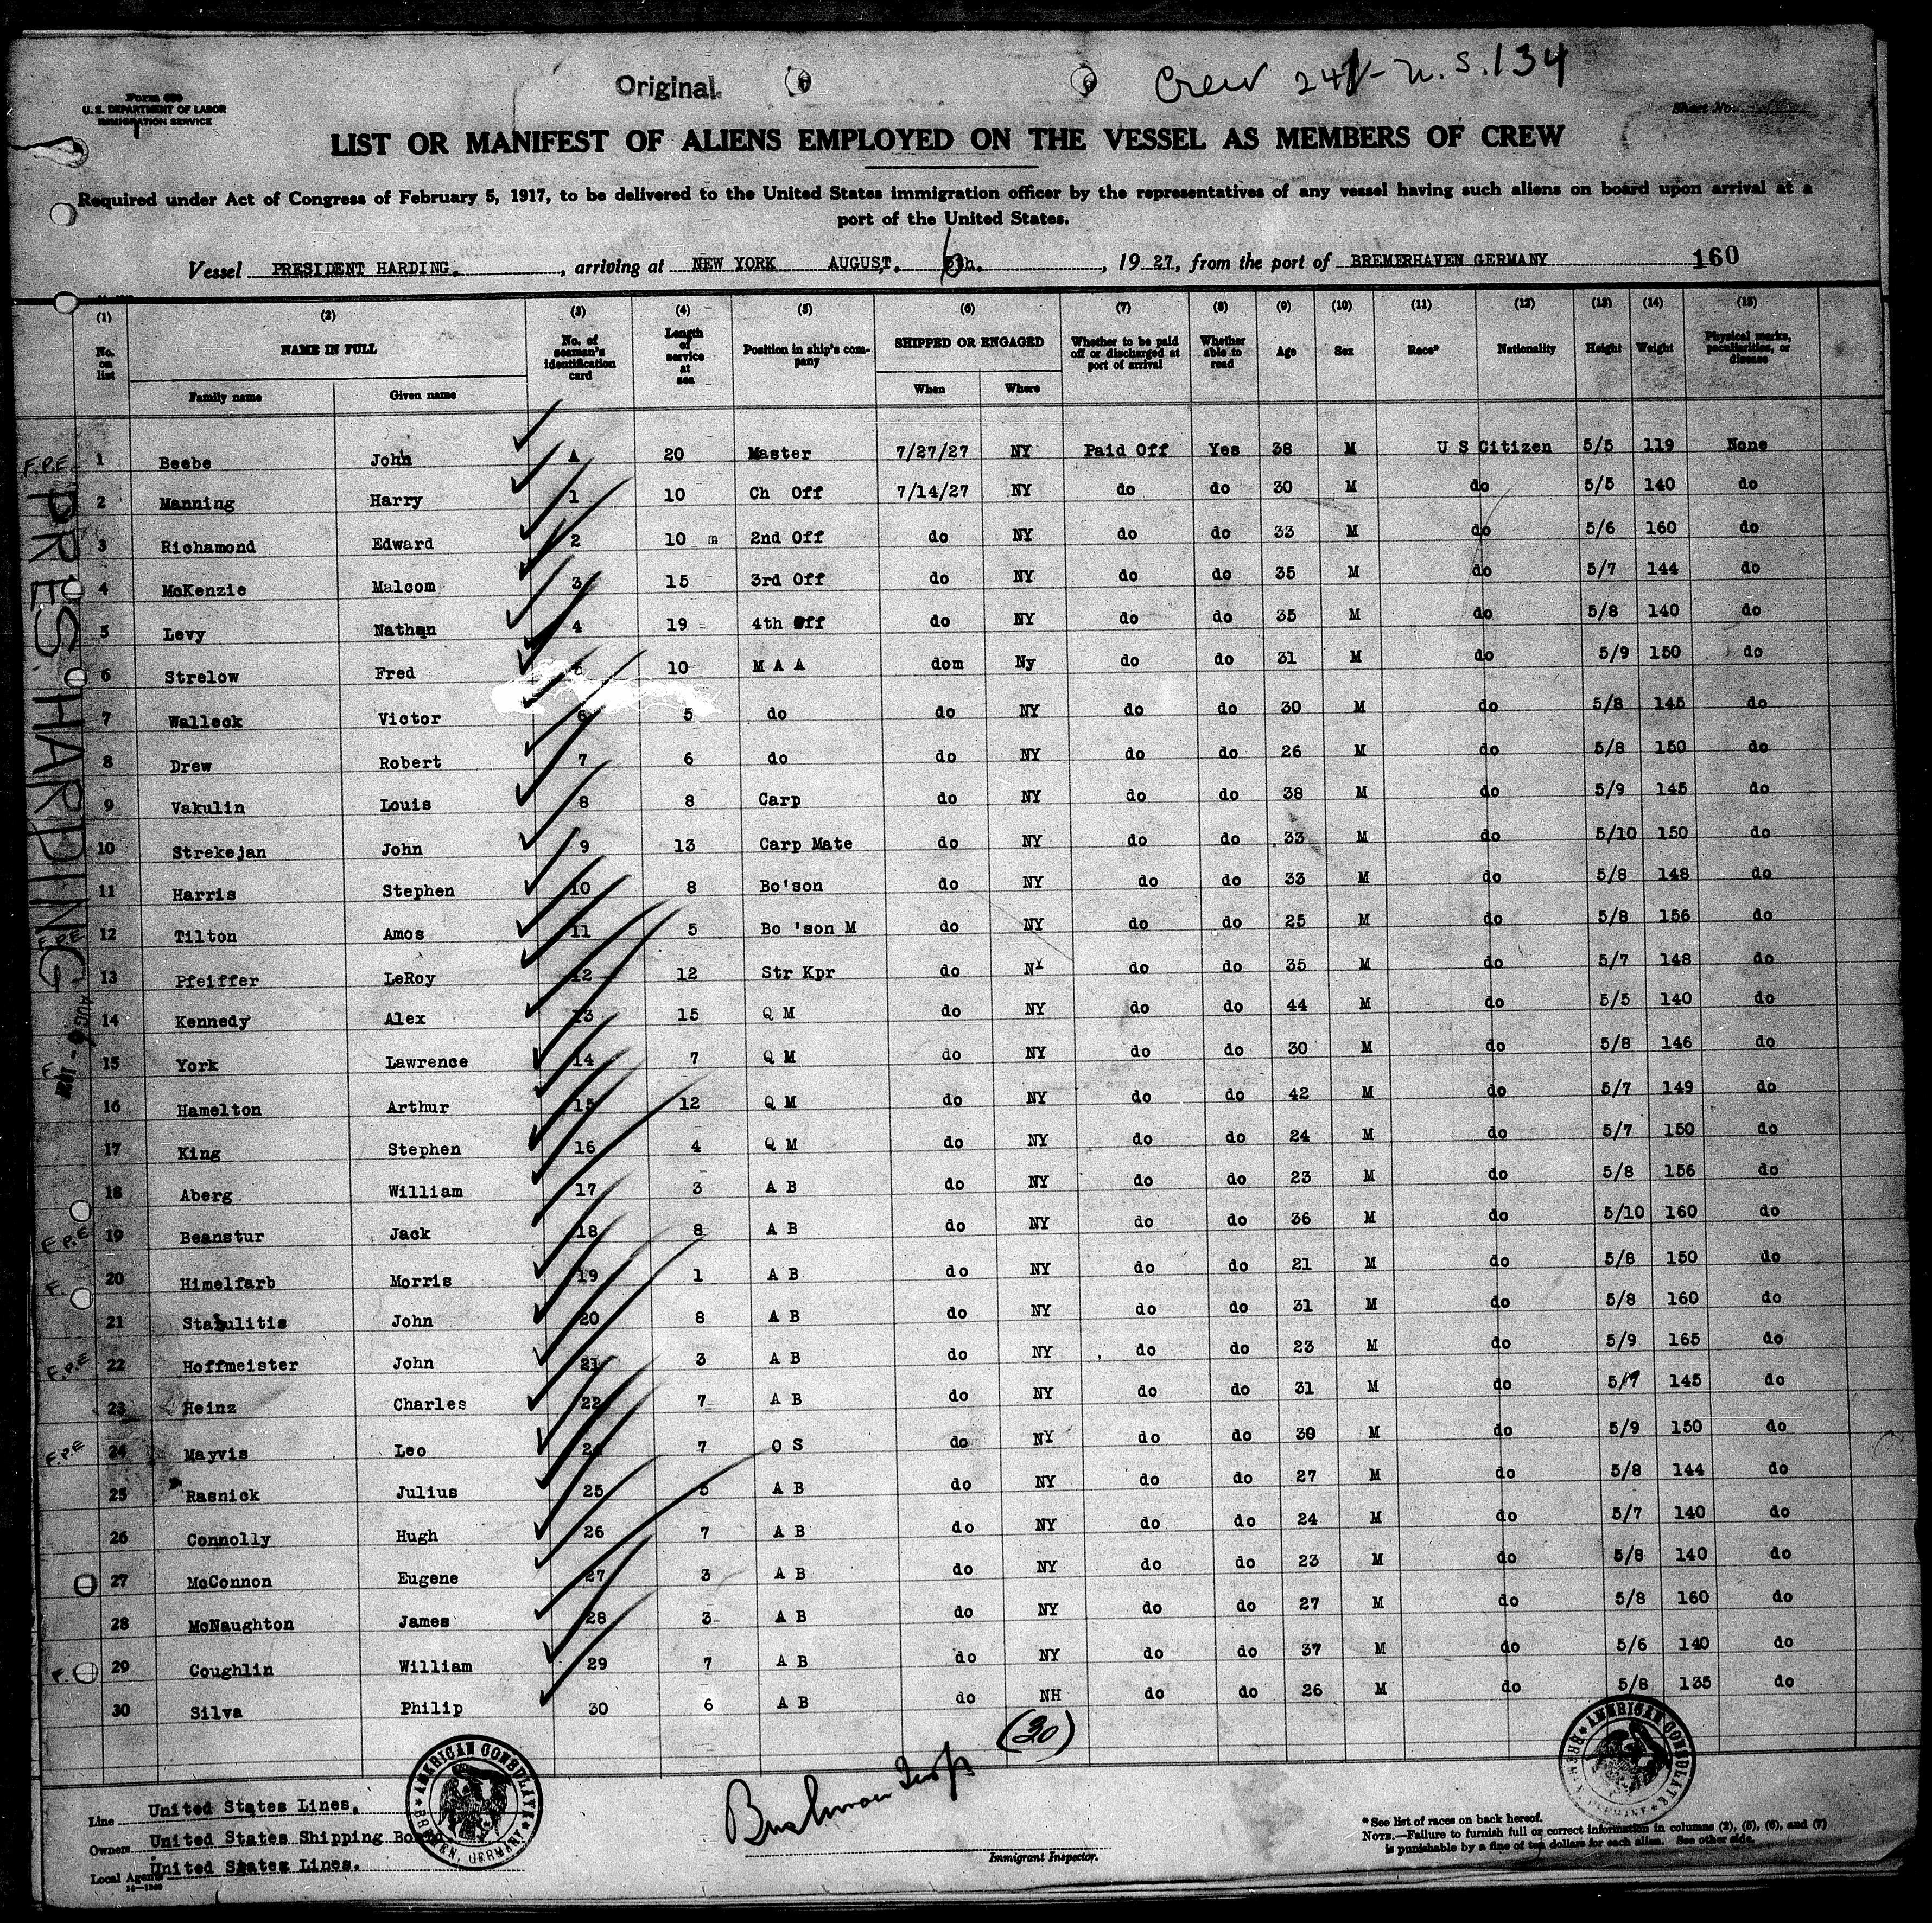 Original.
Crew 24 - U.S. 134
U. S. DEPARTMENT OF LABOR
IMMIGRATION SERVICE
Sheet No.
LIST OR MANIFEST OF ALIENS EMPLOYED ON THE VESSEL AS MEMBERS OF CREW
Required under Act of Congress of February 5, 1917, to be delivered to the United States immigration officer by the representatives of any vessel having such aliens on board upon arrival at a
port of the United States.
Vessel PRESIDENT HARDING. , arriving at NEW YORK AUGUST. 6th. , 19 27, from the port of BREMERHAVEN GERMANY 160
(1) (2) (3) (4) (5) (6) (7) (8) (9) (10) (11) (12) (13) (14) (15)
No. on list NAME IN FULL No. of seaman's identification card Length of service at sea Position in ship's company SHIPPED OR ENGAGED Whether to be paid off or discharged at port of arrival Whether able to read Age Sex Race* Nationality Height Weight Physical marks, peculiarities, or disease
Family name Given name When Where
F.P.E. 1 Beebe John A 20 Master 7/27/27 NY Paid Off Yes 38 M U S Citizen 5/5 119 None
2 Manning Harry 1 10 Ch Off 7/14/27 NY do do 30 M do 5/5 140 do
3 Richamond Edward 2 10 m 2nd Off do NY do do 33 M do 5/6 160 do
4 McKenzie Malcom 3 15 3rd Off do NY do do 35 M do 5/7 144 do
5 Levy Nathan 4 19 4th Off do NY do do 35 M do 5/8 140 do
6 Strelow Fred 10 M A A dom Ny do do 31 M do 5/9 150 do
7 Walleck Victor 6 5 do do NY do do 30 M do 5/8 145 do
8 Drew Robert 7 6 do do NY do do 26 M do 5/8 150 do
9 Vakulin Louis 8 8 Carp do NY do do 38 M do 5/9 145 do
10 Strekejan John 9 13 Carp Mate do NY do do 33 M do 5/10 150 do
11 Harris Stephen 10 8 Bo'son do NY do do 33 M do 5/8 148 do
F.P.E 12 Tilton Amos 11 5 Bo 'son M do NY do do 25 M do 5/8 156 do
13 Pfeiffer LeRoy 12 12 Str Kpr do NY do do 35 M do 5/7 148 do
14 Kennedy Alex 13 15 Q M do NY do do 44 M do 5/5 140 do
15 York Lawrence 14 7 Q M do NY do do 30 M do 5/8 146 do
16 Hamelton Arthur 15 12 Q M do NY do do 42 M do 5/7 149 do
17 King Stephen 16 4 Q M do NY do do 24 M do 5/7 150 do
18 Aberg William 17 3 A B do NY do do 23 M do 5/8 156 do
F.P.E 19 Beanstur Jack 18 8 A B do NY do do 36 M do 5/10 160 do
20 Himelfarb Morris 19 1 A B do NY do do 21 M do 5/8 150 do
21 Stabulitis John 20 8 A B do NY do do 31 M do 5/8 160 do
F.P.E 22 Hoffmeister John 21 3 A B do NY do do 23 M do 5/9 165 do
23 Heinz Charles 22 7 A B do NY do do 31 M do 5/7 145 do
F.P.E 24 Mayvis Leo 24 7 O S do NY do do 30 M do 5/9 150 do
25 Rasnick Julius 25 5 A B do NY do do 27 M do 5/8 144 do
26 Connolly Hugh 26 7 A B do NY do do 24 M do 5/7 140 do
27 McConnon Eugene 27 3 A B do NY do do 23 M do 5/8 140 do
28 McNaughton James 28 3 A B do NY do do 27 M do 5/8 160 do
29 Coughlin William 29 7 A B do NY do do 37 M do 5/6 140 do
30 Silva Philip 30 6 A B do NH do do 26 M do 5/8 135 do
PRES. HARDING
AUG 6 - 1927
(30)
Line United States Lines.
Owners United States Shipping Board
Local Agents United States Lines.
AMERICAN CONSULATE
BREMEN, GERMANY
Immigrant Inspector.
AMERICAN CONSULATE
BREMEN, GERMANY
* See list of races on back hereof.
NOTE.—Failure to furnish full or correct information in columns (2), (5), (6), and (7)
is punishable by a fine of ten dollars for each alien. See other side.